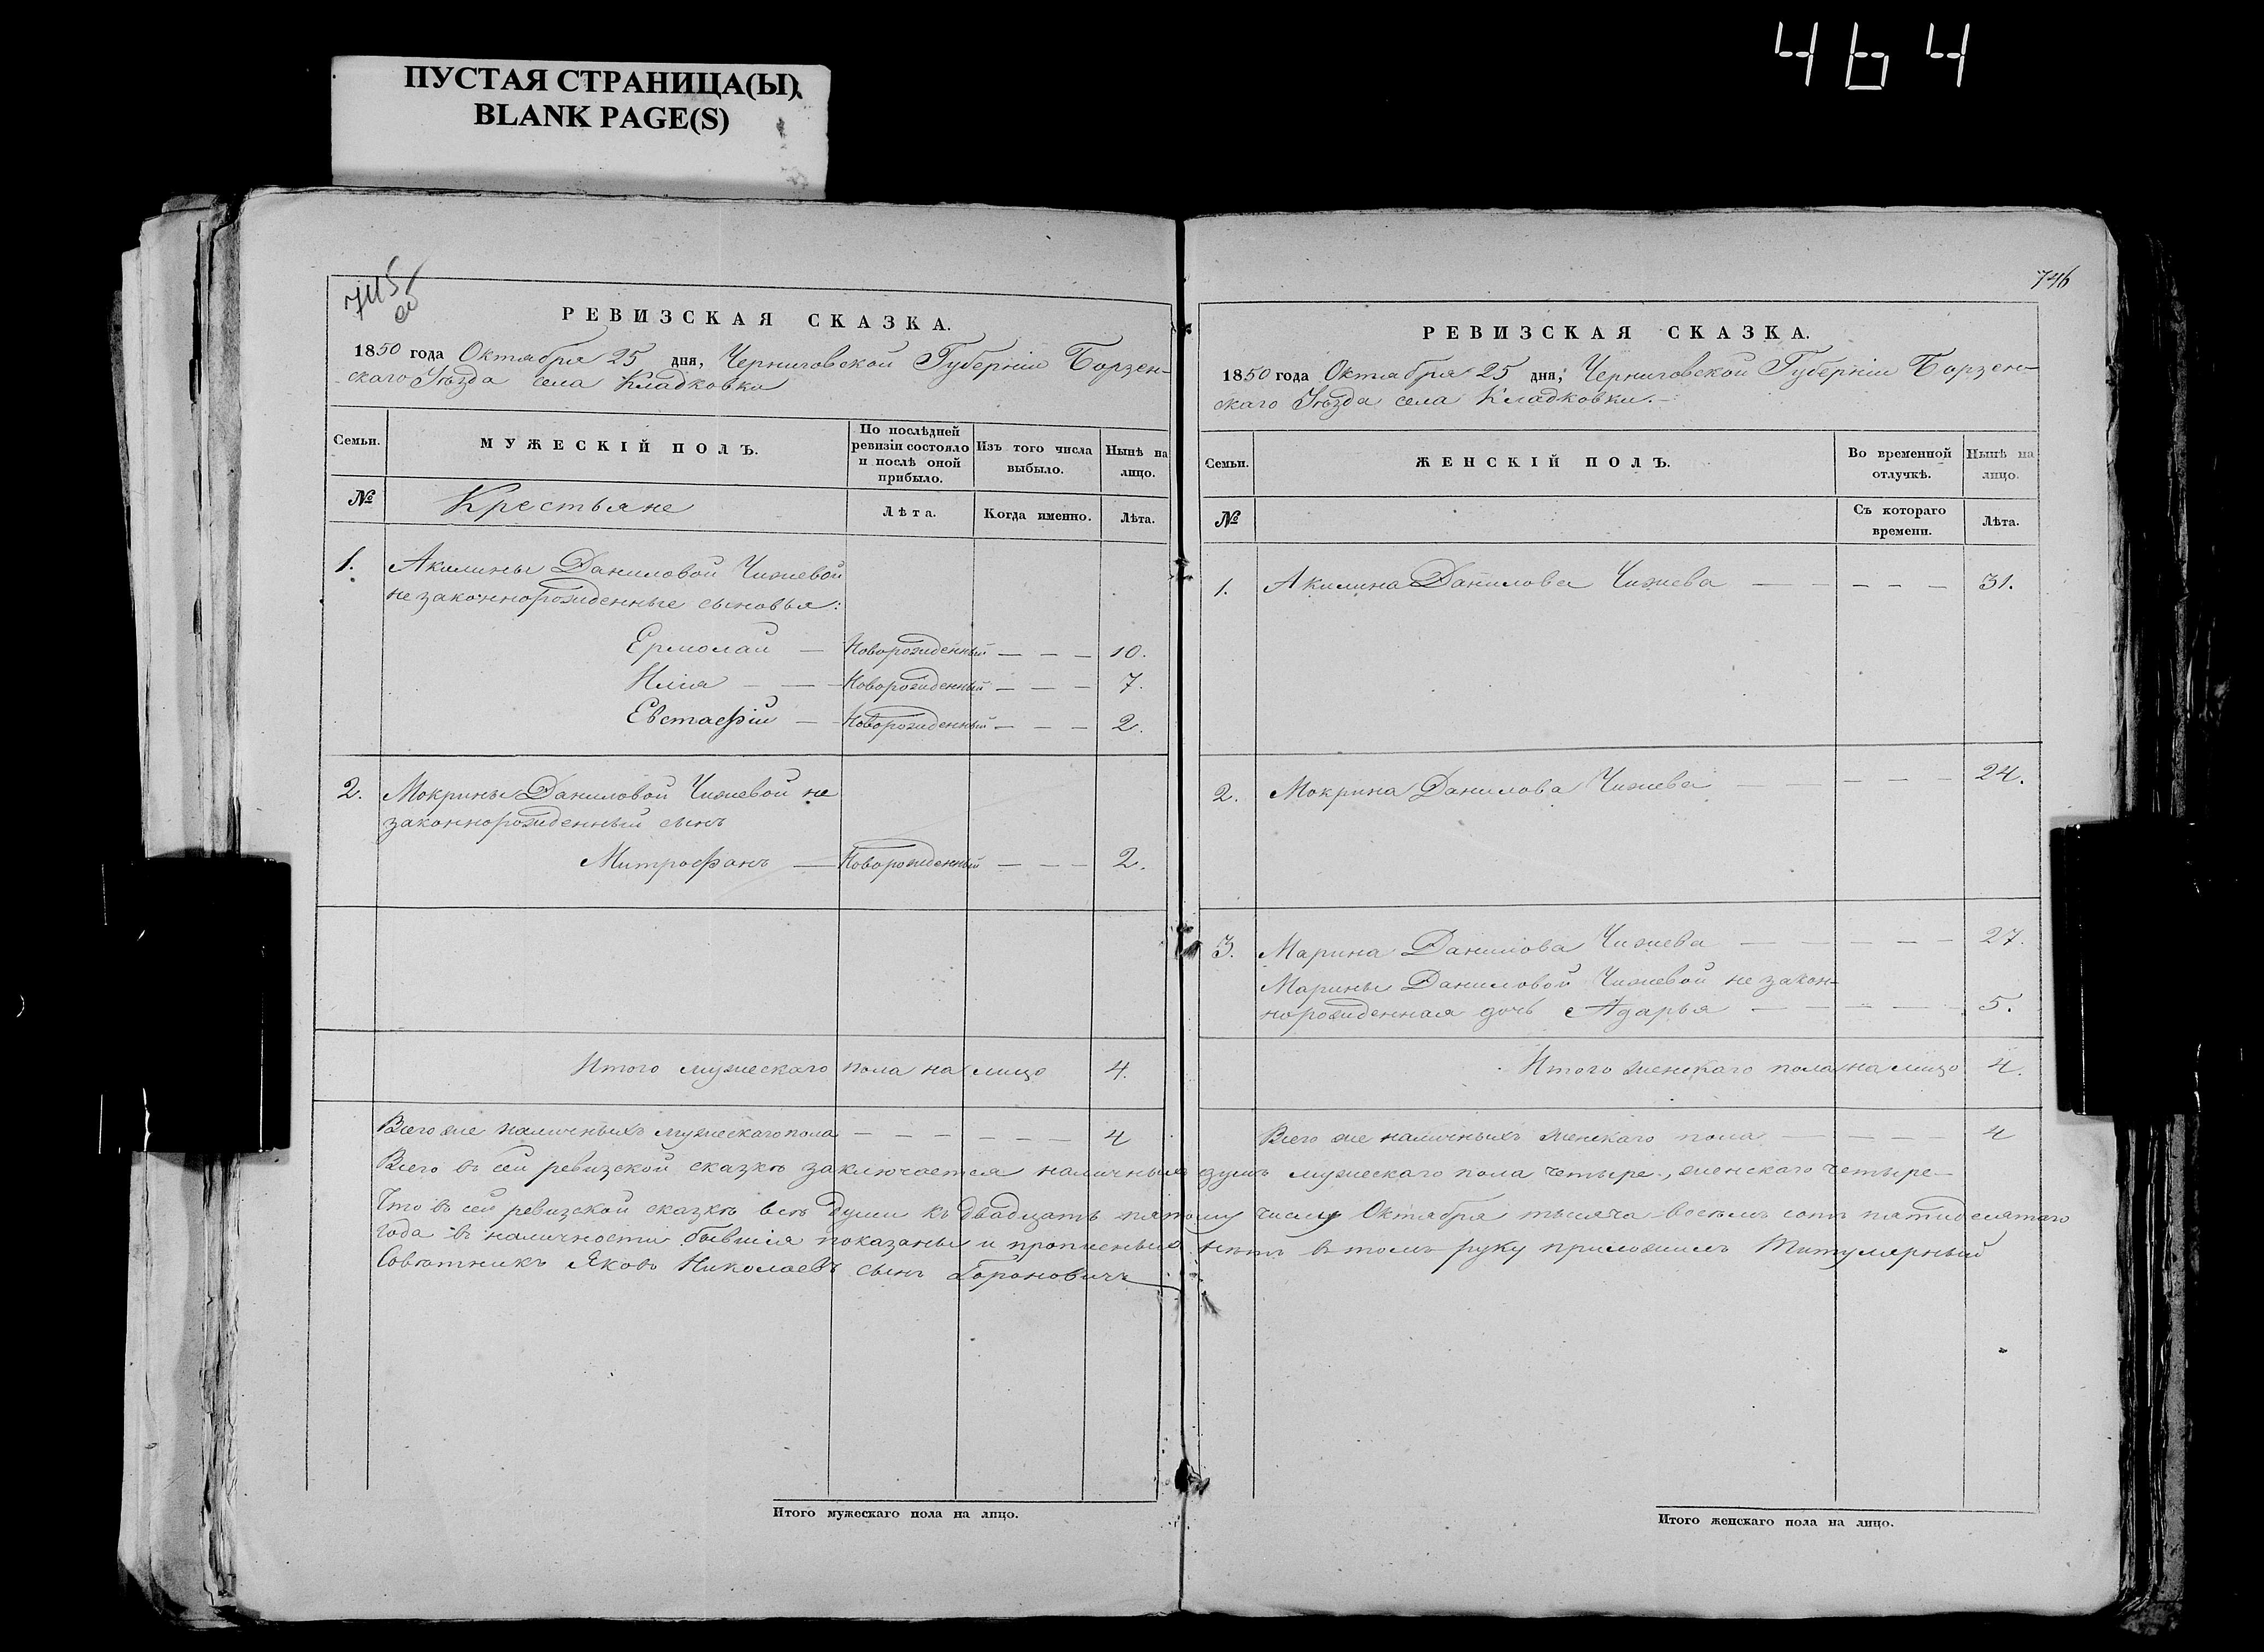 464
ПУСТАЯ СТРАНИЦА(Ы)
BLANK PAGE(S)
745
об
РЕВИЗСКАЯ СКАЗКА.
1850 года Октября 25 дня, Черниговской Губерніи Борзен-
скаго Уѣзда села Кладковки
Семьи.
МУЖЕСКІЙ ПОЛЪ.
По послѣдней ревизіи состояло и послѣ оной прибыло.
Изъ того числа выбыло.
Нынѣ на лицо.
№
Крестьяне
Лѣта.
Когда именно.
Лѣта.
1. Акилины Даниловой Чижевой
не законнорожденные сыновья:
Ермолай — Новорожденный — — — 10.
Илія — — Новорожденный — — — 7.
Евстафій — Новорожденный — — — 2.
2. Мокрины Даниловой Чижевой не
законнорожденный сынъ
Митрофанъ — Новорожденный — — — 2.
Итого мужескаго пола на лицо 4.
Всего же наличныхъ мужескаго пола — — — — — — 4
746
РЕВИЗСКАЯ СКАЗКА.
1850 года Октября 25 дня, Черниговской Губерніи Борзен-
скаго Уѣзда села Кладковки.
Семьи.
ЖЕНСКІЙ ПОЛЪ.
Во временной отлучкѣ.
Нынѣ на лицо.
№
Съ котораго времени.
Лѣта.
1. Акилина Данилова Чижева — — — — — 31.
2. Мокрина Данилова Чижева — — — — — 24.
3. Марина Данилова Чижева — — — — — 27.
Марины Даниловой Чижевой не закон-
норожденная дочь Адарья — — — — 5.
Итого женскаго пола на лицо 4.
Всего же наличныхъ женскаго пола — — — — 4
Всего въ сей ревизской сказкѣ заключается наличныхъ душъ мужескаго пола четыре, женскаго четыре —
Что въ сей ревизской сказкѣ всѣ души къ двадцать пятому числу Октября тысяча восемь сотъ пятидесятаго
года въ наличности бывшія показаны и прописныхъ нѣтъ въ томъ руку приложилъ Титулярный
Совѣтникъ Яковъ Николаевъ сынъ Тороновичъ
Итого мужескаго пола на лицо.
Итого женскаго пола на лицо.